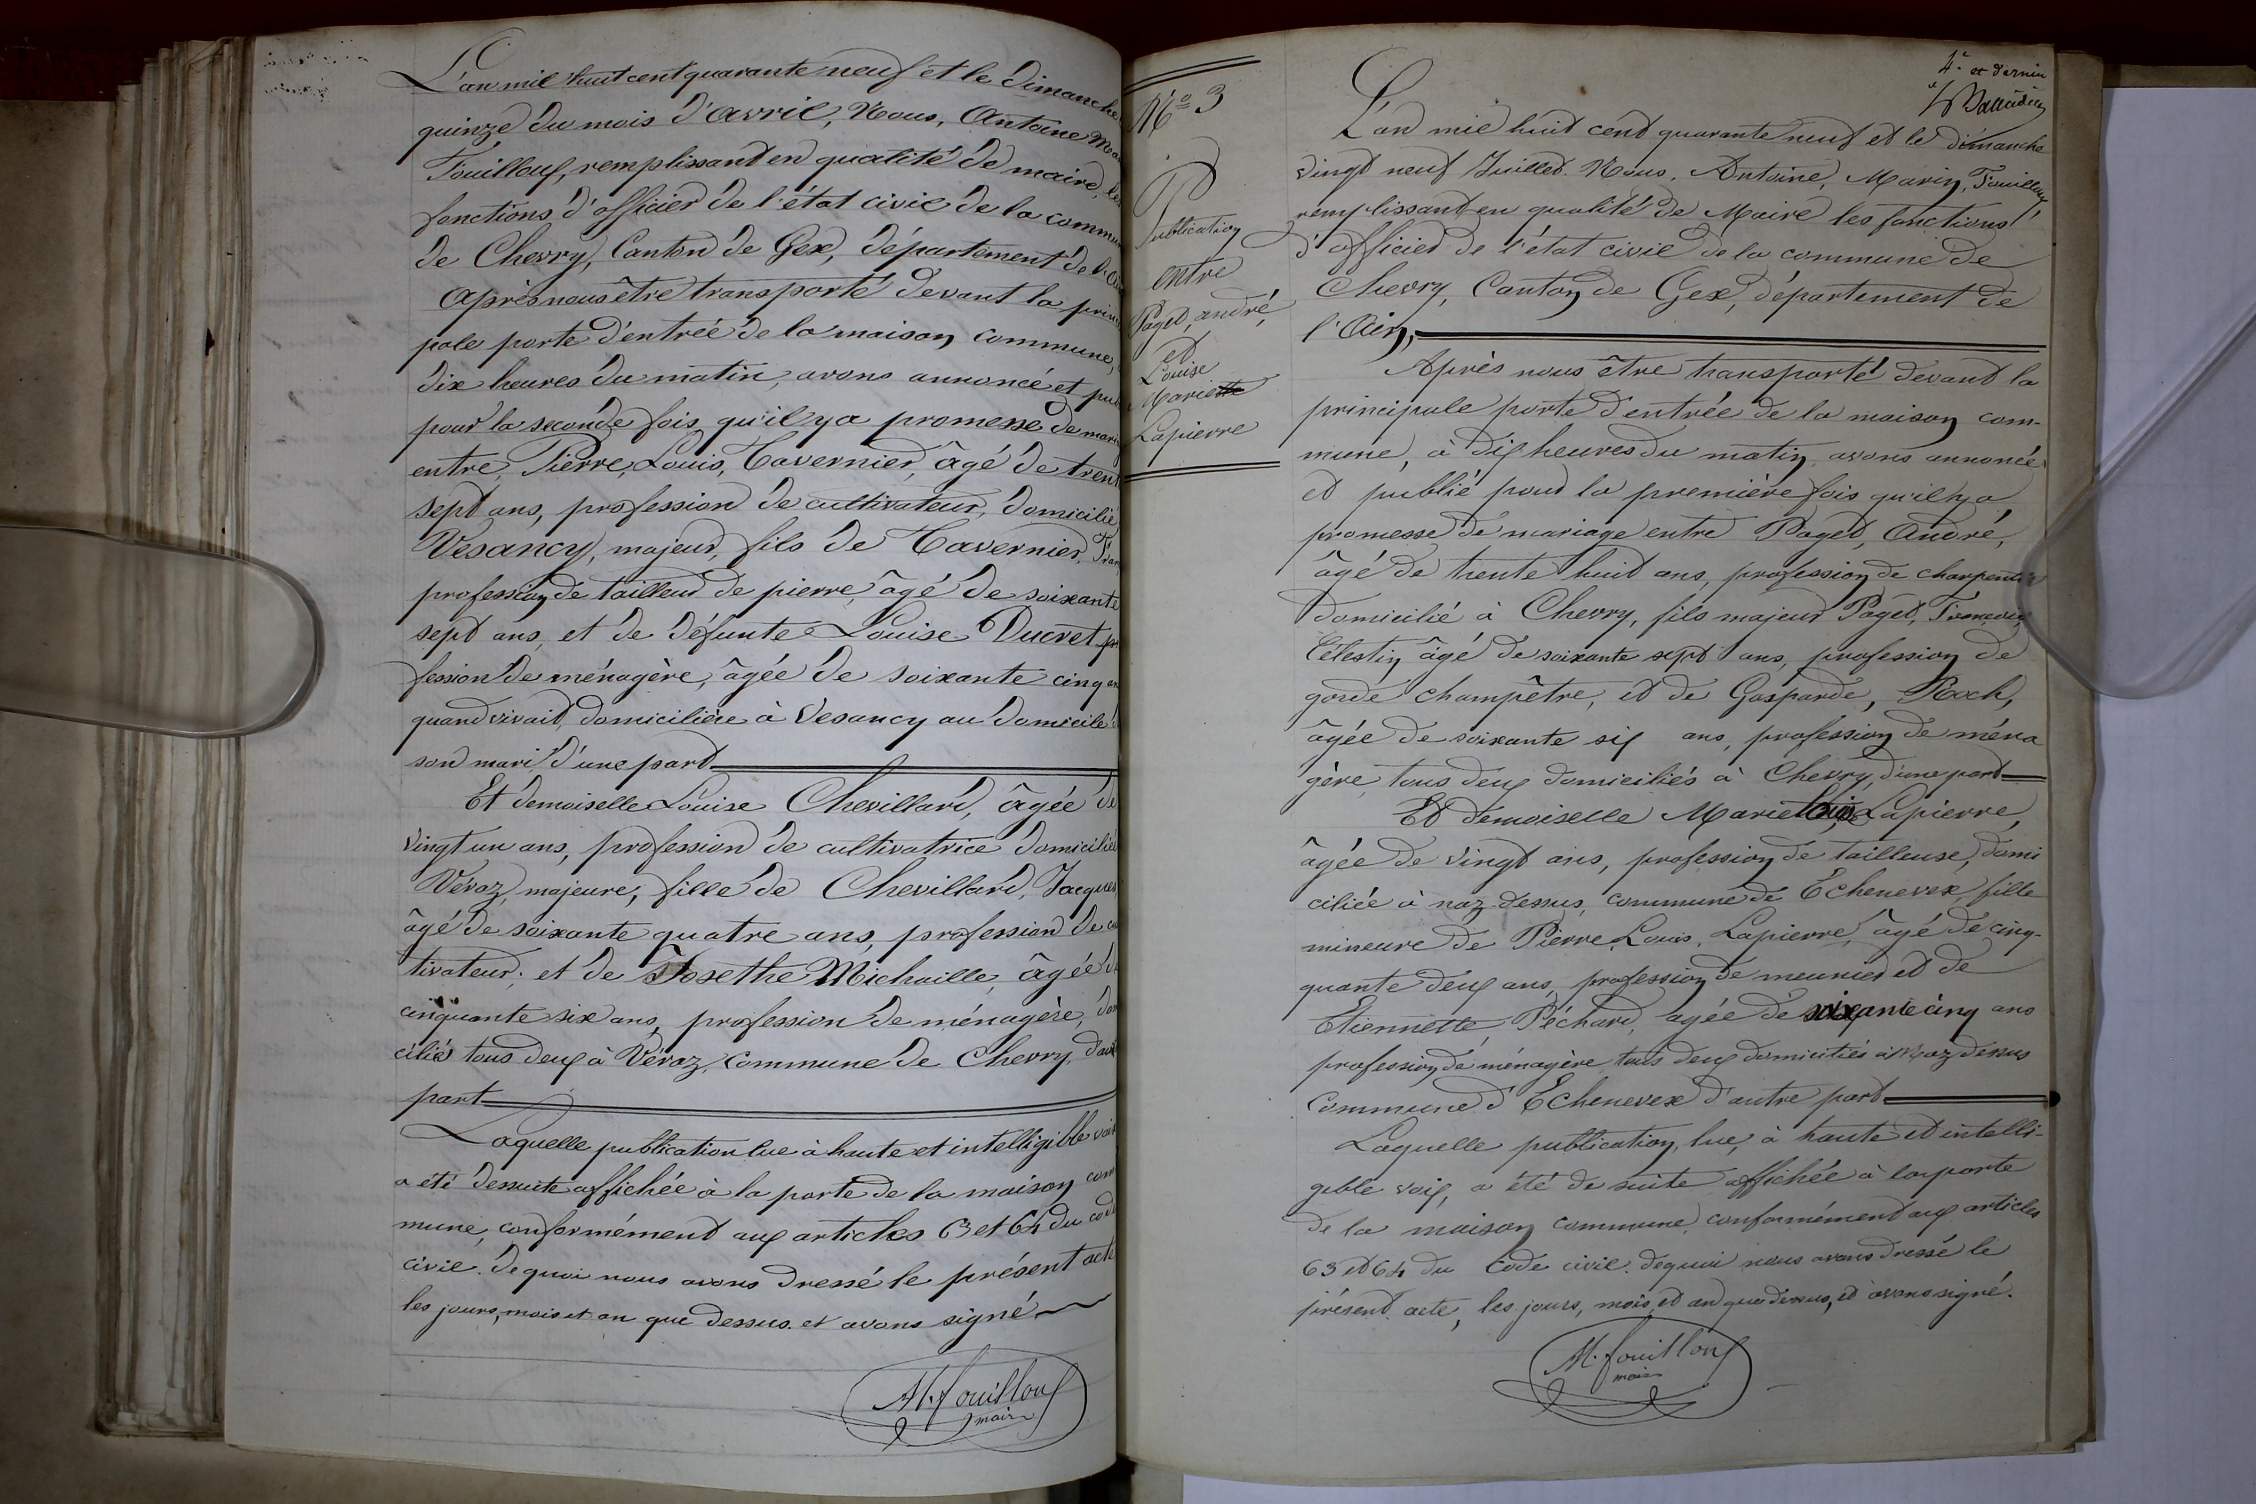 L'an mil huit cent quarante neuf et le dimanche
quinze du mois d'avril, Nous, Antoine Ma
Fouilloux, remplissant en qualité de maire, les
fonctions d'officier de l'état civil de la commu
de Chevry, Canton de Gex, département de l'Ain
Après nous être transporté devant la princi
pale porte d'entrée de la maison commune,
dix heures du matin, avons annoncé et pub
pour la seconde fois qu'il y a promesse de maria
entre, Pierre, Louis, Tavernier, âgé de trent
sept ans, profession de cultivateur, domicilié
Vesancy, majeur, fils de Tavernier, Fran
profession de tailleur de pierre, âgé de soixante
sept ans, et de défunte Louise Ducret pro
fession de ménagère, âgée de soixante cinq an
quand vivait, domicilière à Vesancy au domicile d
son mari d'une part
Et demoiselle Louise Chevillard, âgée de
vingt un ans, profession de cultivatrice domiciliée
Véraz, majeure, fille de Chevillard, Jacques
âgé de soixante quatre ans, profession de cu
tivateur; et de Josethe Michaille, âgée d
cinquante six ans, profession de ménagère, dom
ciliés tous deux à Véraz, commune de Chevry, d'aut
part
Laquelle publication lue à haute et intelligible voix
a été dessuite affichée à la porte de la maison com
mune, conformément aux articles 63 et 64 du code
civil. De quoi nous avons dressé le présent acte
les jours, mois et an que dessus et avons signé
M. fouilloux
maire
4e et dernier
N° 3
Publication
entre
Paget, andré,
et
Louise
Mariette
Lapierre
L'an mil huit cent quarante neuf et le dimanche
vingt neuf Juillet. Nous, Antoine, Marin, Fouilloux
remplissant en qualité de Maire les fonctions
d'officier de l'état civil de la commune de
Chevry, Canton de Gex, département de
l'Ain,
Après nous être transporté devant la
principale porte d'entrée de la maison com-
mune, à dix heures du matin, avons annoncé
et publié pour la première fois qu'il y a
promesse de mariage entre Paget, André,
âgé de trente huit ans, profession de charpentier
domicilié à Chevry, fils majeur Paget, François
Célestin, âgé de soixante sept ans, profession de
garde champêtre, et de Gasparde, Roch,
âgée de soixante six ans, profession de ména
gère, tous deux domiciliés à Chevry, d'une part
Et demoiselle Marie Louise Lapierre,
âgée de vingt ans, profession de tailleuse, domi
ciliée à naz-dessus, commune de Echenevex, fille
mineure de Pierre, Louis, Lapierre, âgé de cinq-
quante deux ans, profession de meunier et de
Etiennette, Péchard, agée de soixante cinq ans
profession de ménagère, tous deux domiciliés à Naz dessus
Commune d'Echenevex d'autre part
Laquelle publication, lue, à haute et intelli-
gible voix, a été de suite affichée à la porte
de la maison commune, conformément aux articles
63 et 64 du Code civil. dequoi nous avons dressé le
présent acte, les jours, mois, et an que dessus, et avons signé.
M. fouilloux
maire